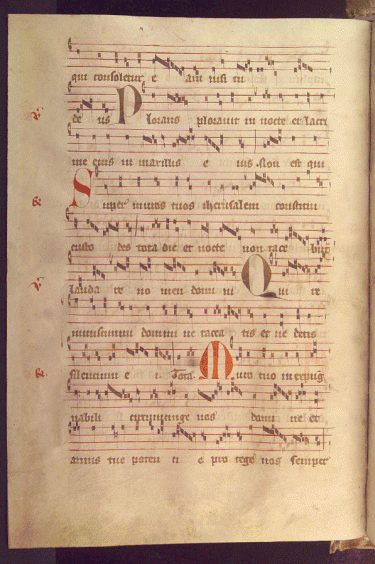 qui consoletur e am nisi tu
de us Plorans plorauit in nocte et lacri
me eius in maxillis e ius Non est qui
Super muros tuos iherusalem constitui
custo des tota die et nocte non tace bunt
lauda re no men domi ni Qui re
miniscimini domini ne tacea tis et ne detis
silencium e i Tota Muro tuo inexpug
nabili circumcinge nos domi ne et
armis tue poten ti e pro tege nos semper